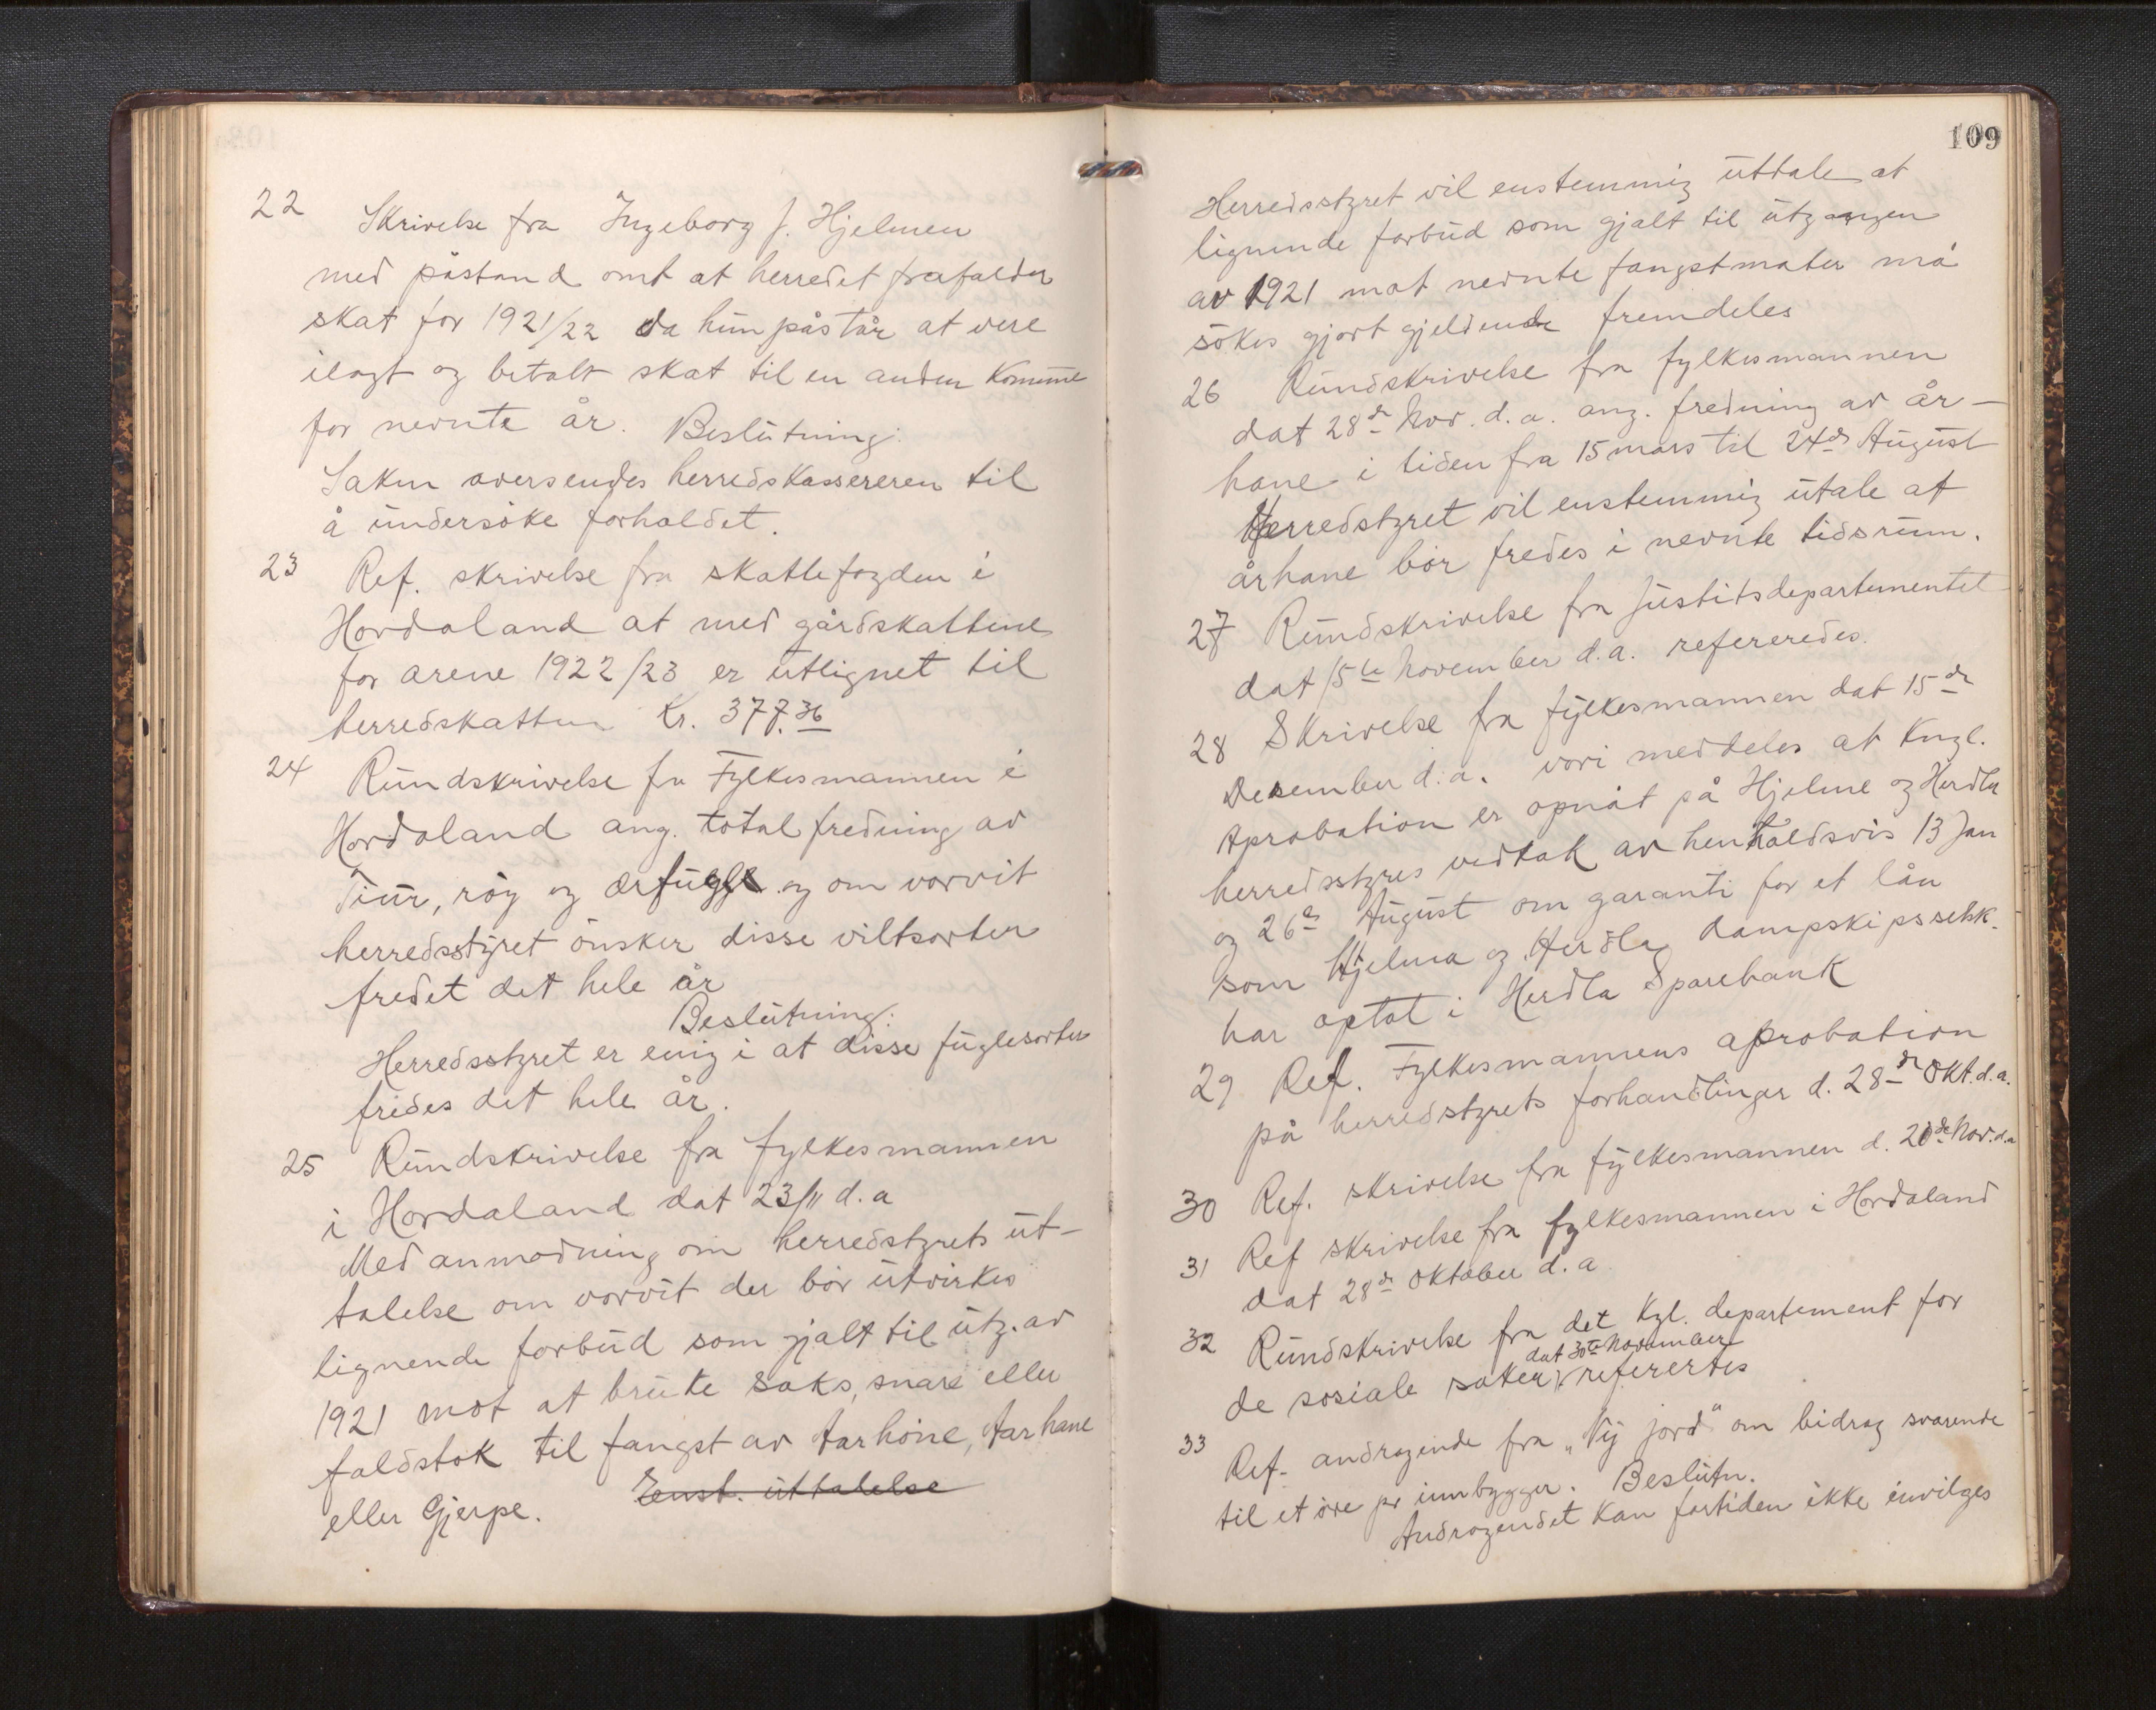 22 Skrivelse fra Ingeborg J. Hjelmen
med påstand omt at herredet frafalder
skat for 1921/22 da hun påstår at vere
ilagt og betalt skat til en anden Komune
for nevnte år. Beslutning:
Saken oversendes herredskassereren til
å undersöke forholdet.
23 Ref. skrivelse fra skattefogden i
Hordaland at med gårdskattene
for arene 1922/23 er utlignet til
herredskatten Kr. 377.36
24 Rundskrivelse fra Fylkesmannen i
Hordaland ang. total fredning av
Tiur, röy og ærfugle og om vorvit
herredsstyret önsker disse viltsorter
fredet det hele år
Beslutning:
Herredsstyret er enig i at disse fuglesorter
fredes det hele år.
25 Rundskrivelse fra fylkesmannen
i Hordaland dat 23/11 d.a
Med anmodning om herredstyrets ut-
talelse om vorvit der bör utvirkes
lignende forbud som gjalt til utg. av
1921 mot at brukte saks, snare eller
faldstok til fangst av Aarhöne, Aarhane
eller Gjerpe. Enst. uttalelse
109
Herredsstyret vil enstemmig uttale at
lignende forbud som gjalt til utgangen
av 1921 mot nevnte fangstmater må
sökes gjort gjeldende fremdeles
26 Rundskrivelse fra fylkesmannen
dat 28de Nov. d.a. ang. fredning av år-
hane i tiden fra 15 mars til 24de August
Herredstyret vil enstemmig utale at
århane bör fredes i nevnte tidsrum.
27 Rundskrivelse fra Justitsdepartementet
dat 15te November d.a. refereredes.
28 Skrivelse fra fylkesmannen dat 15de
Desember d.a. vori meddeles at Kngl.
Aprobation er opnåt på Hjelme og Herdla
herredsstyres vedtak av henholdsvis 13 Jan
og 26de August om garanti for et lån
som Hjelma og Herdla dampskipsselsk.
har optat i Herdla Sparebank
29 Ref. Fylkesmannens aprobation
på herredstyrets forhandlinger d. 28de Okt. d.a.
30 Ref. skrivelse fra fylkesmannen d. 20de Nov. d.a
31 Ref skrivelse fra fylkesmannen i Hordaland
dat 28de Oktober d.a
32 Rundskrivelse fra det Kgl. departement for
dat 30te November
de sosiale saker referertes
33 Ref. andragende fra „Ny jord" om bidrag svarende
til et öre pr innbygger. Beslutn.
Andragendet kan fortiden ikke invilges